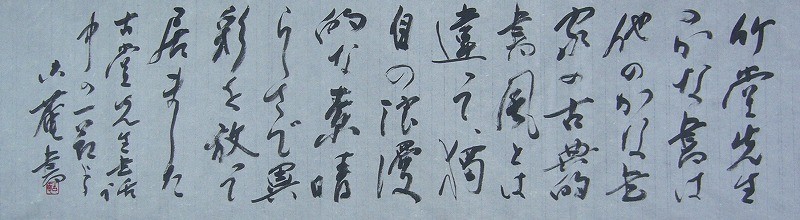 竹堂先生
のかな書は
他のかな書
家の古典的
書風とは
違って、獨
自の浪漫
的な素晴
らしさで異
彩を放って
居ました
古堂先生書話
中の一節よ
書